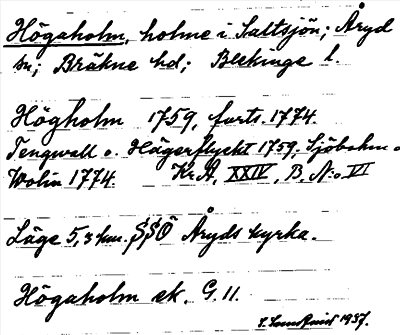 Högaholm, holme i Saltsjön; Åryd
sn; Bräkne hd; Blekinge l.
Högholm 1759, forts. 1774.
Tengwall o. Hägerflyckt 1759. Sjöbohm o
Wolin 1774. Kr.A, XXIV, B. N:o VI
Läge 5,3 km. SSÖ Åryds kyrka.
Högaholm ek. G. 11.
1937.